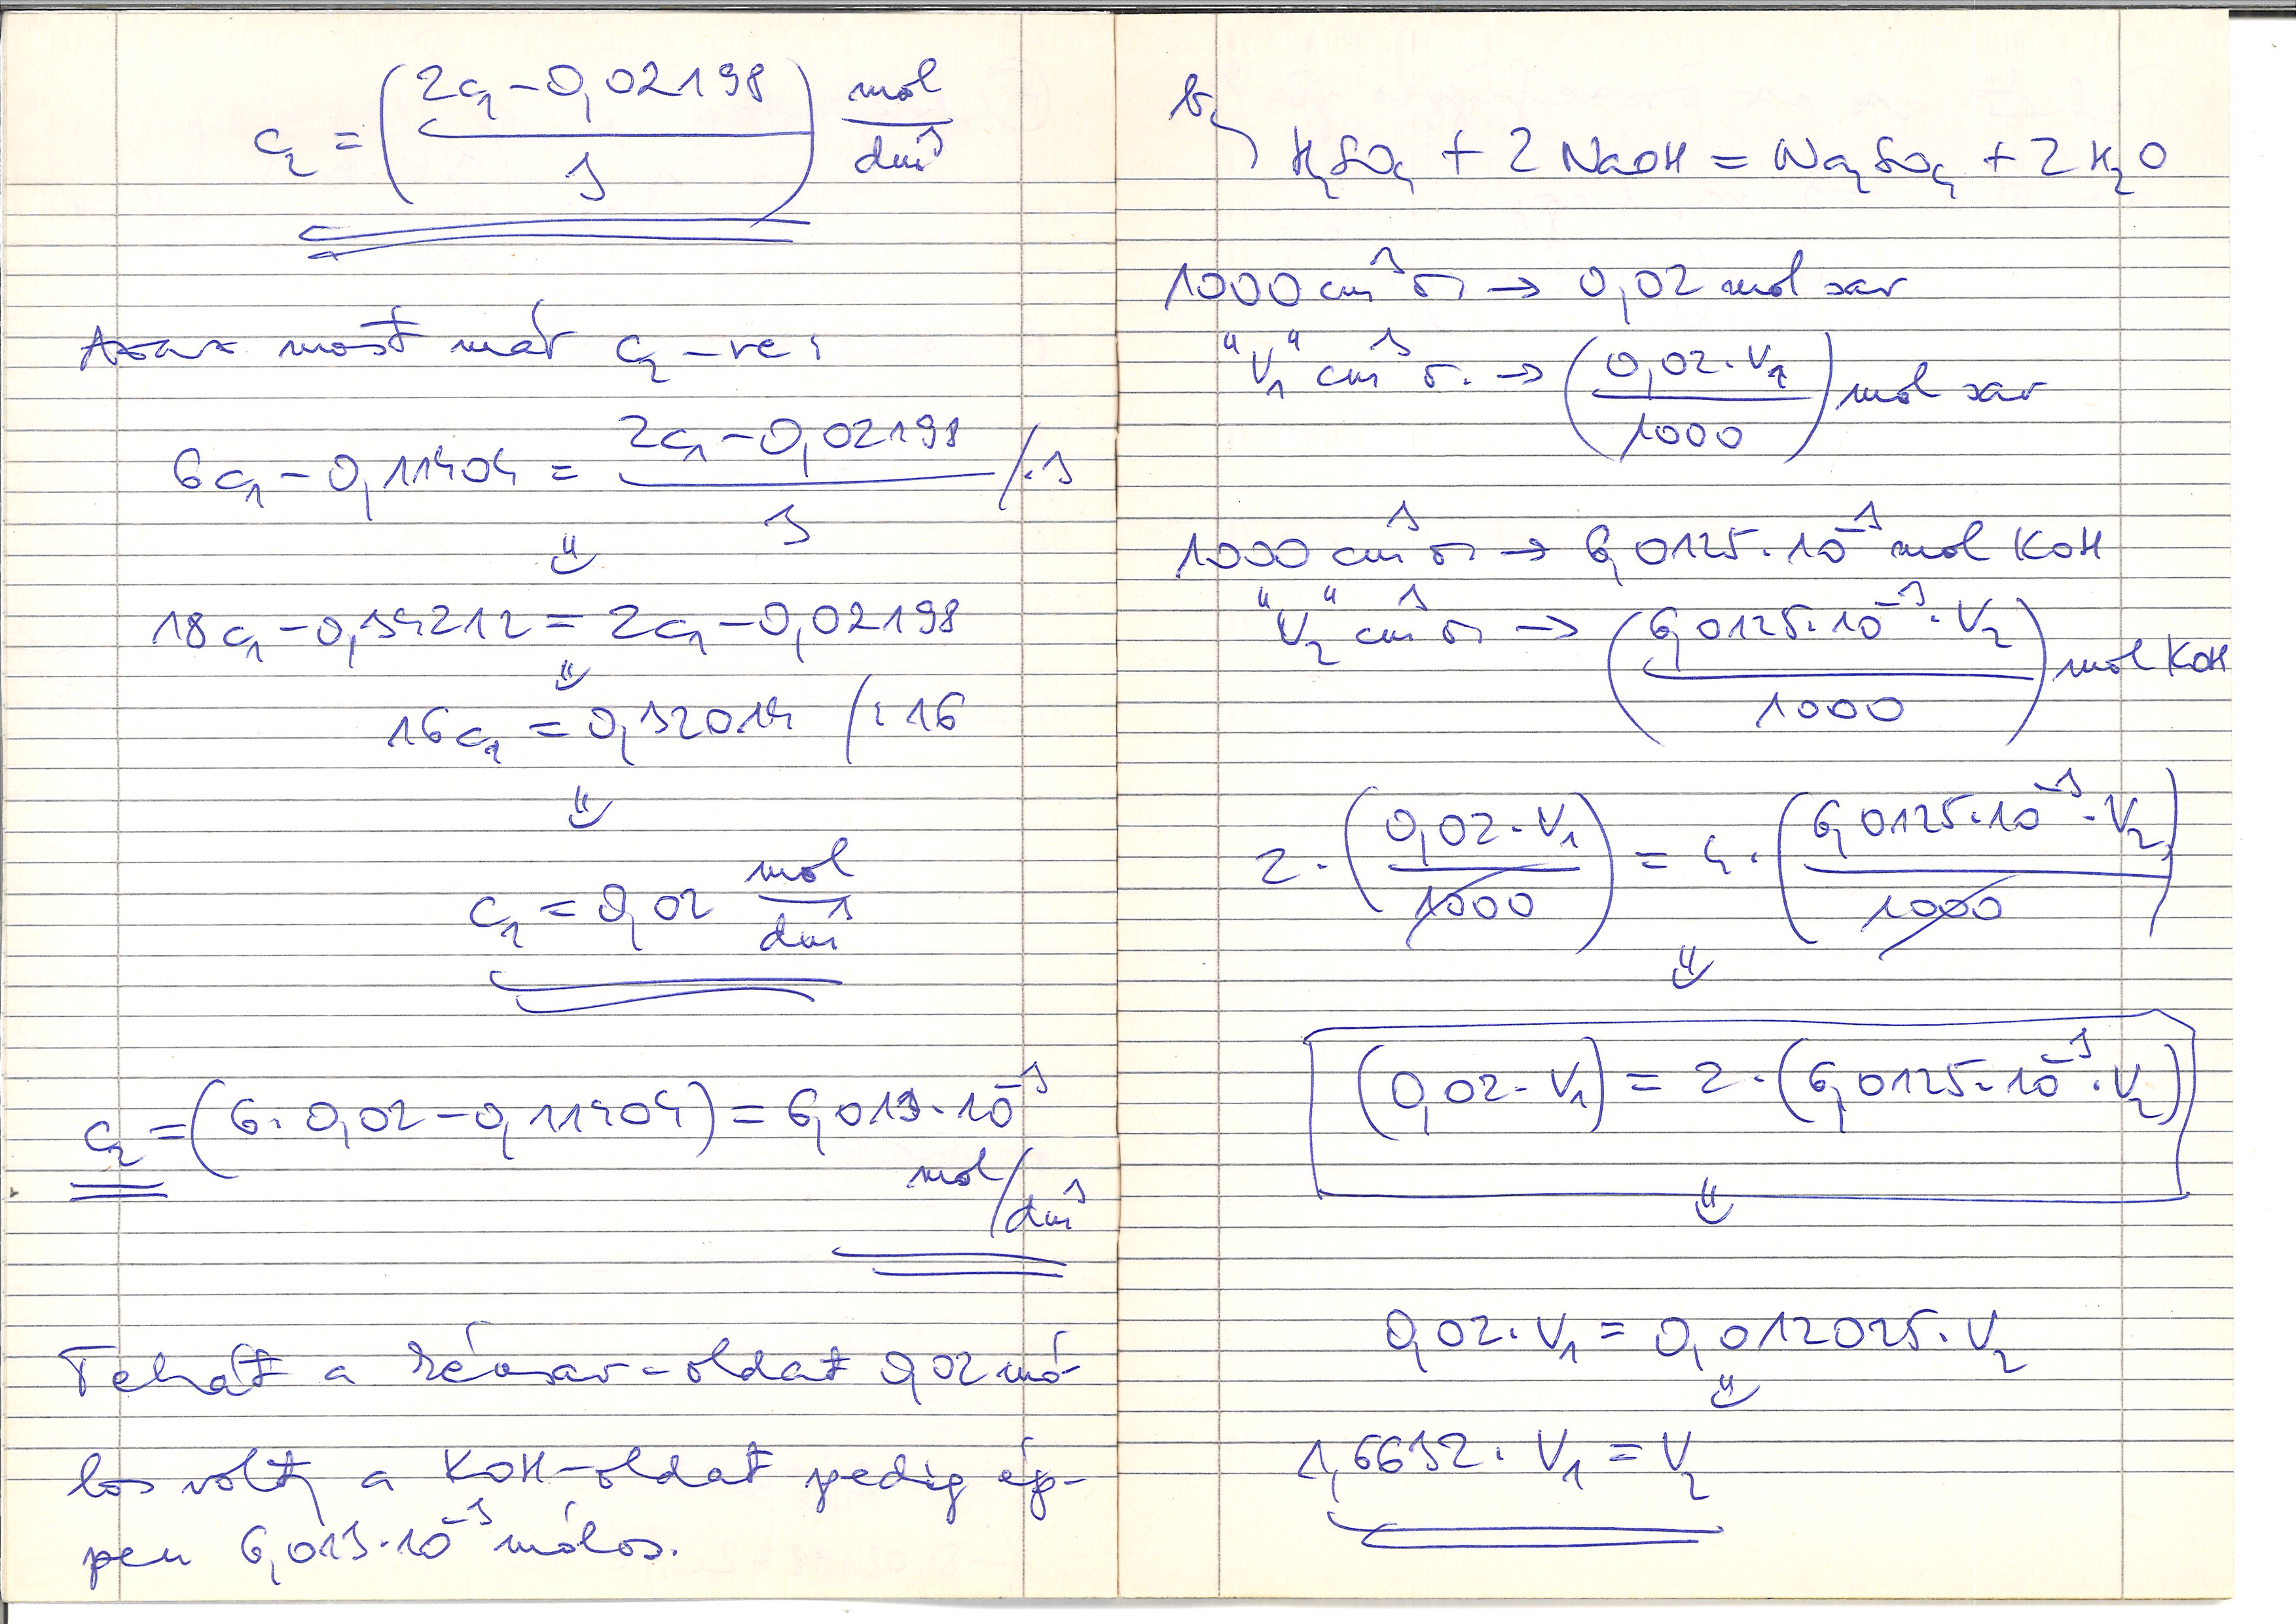 c₂ = ((2c₁ - 0,02198)/3) mol/dm³
Azaz most már c₂-re:
6c₁ - 0,11404 = (2c₁ - 0,02198)/3 /·3
⇓
18c₁ - 0,34212 = 2c₁ - 0,02198
⇓
16c₁ = 0,32014 /:16
⇓
c₁ = 0,02 mol/dm³
c₂ = (6·0,02 - 0,11404) = 6,013·10⁻³
mol/dm³
Tehát a kénsav-oldat 0,02 mó-
los volt, a KOH-oldat pedig ép-
pen 6,013·10⁻³ mólos.
b,
H₂SO₄ + 2 NaOH = Na₂SO₄ + 2 H₂O
1000 cm³ o. → 0,02 mol sav
"V₁" cm³ o. → ((0,02·V₁)/1000) mol sav
1000 cm³ o. → 6,0125·10⁻³ mol KOH
"V₂" cm³ o. → ((6,0125·10⁻³·V₂)/1000) mol KOH
2·((0,02·V₁)/1000) = 4·((6,0125·10⁻³·V₂)/1000)
⇓
(0,02·V₁) = 2·(6,0125·10⁻³·V₂)
⇓
0,02·V₁ = 0,012025·V₂
⇓
1,6632·V₁ = V₂